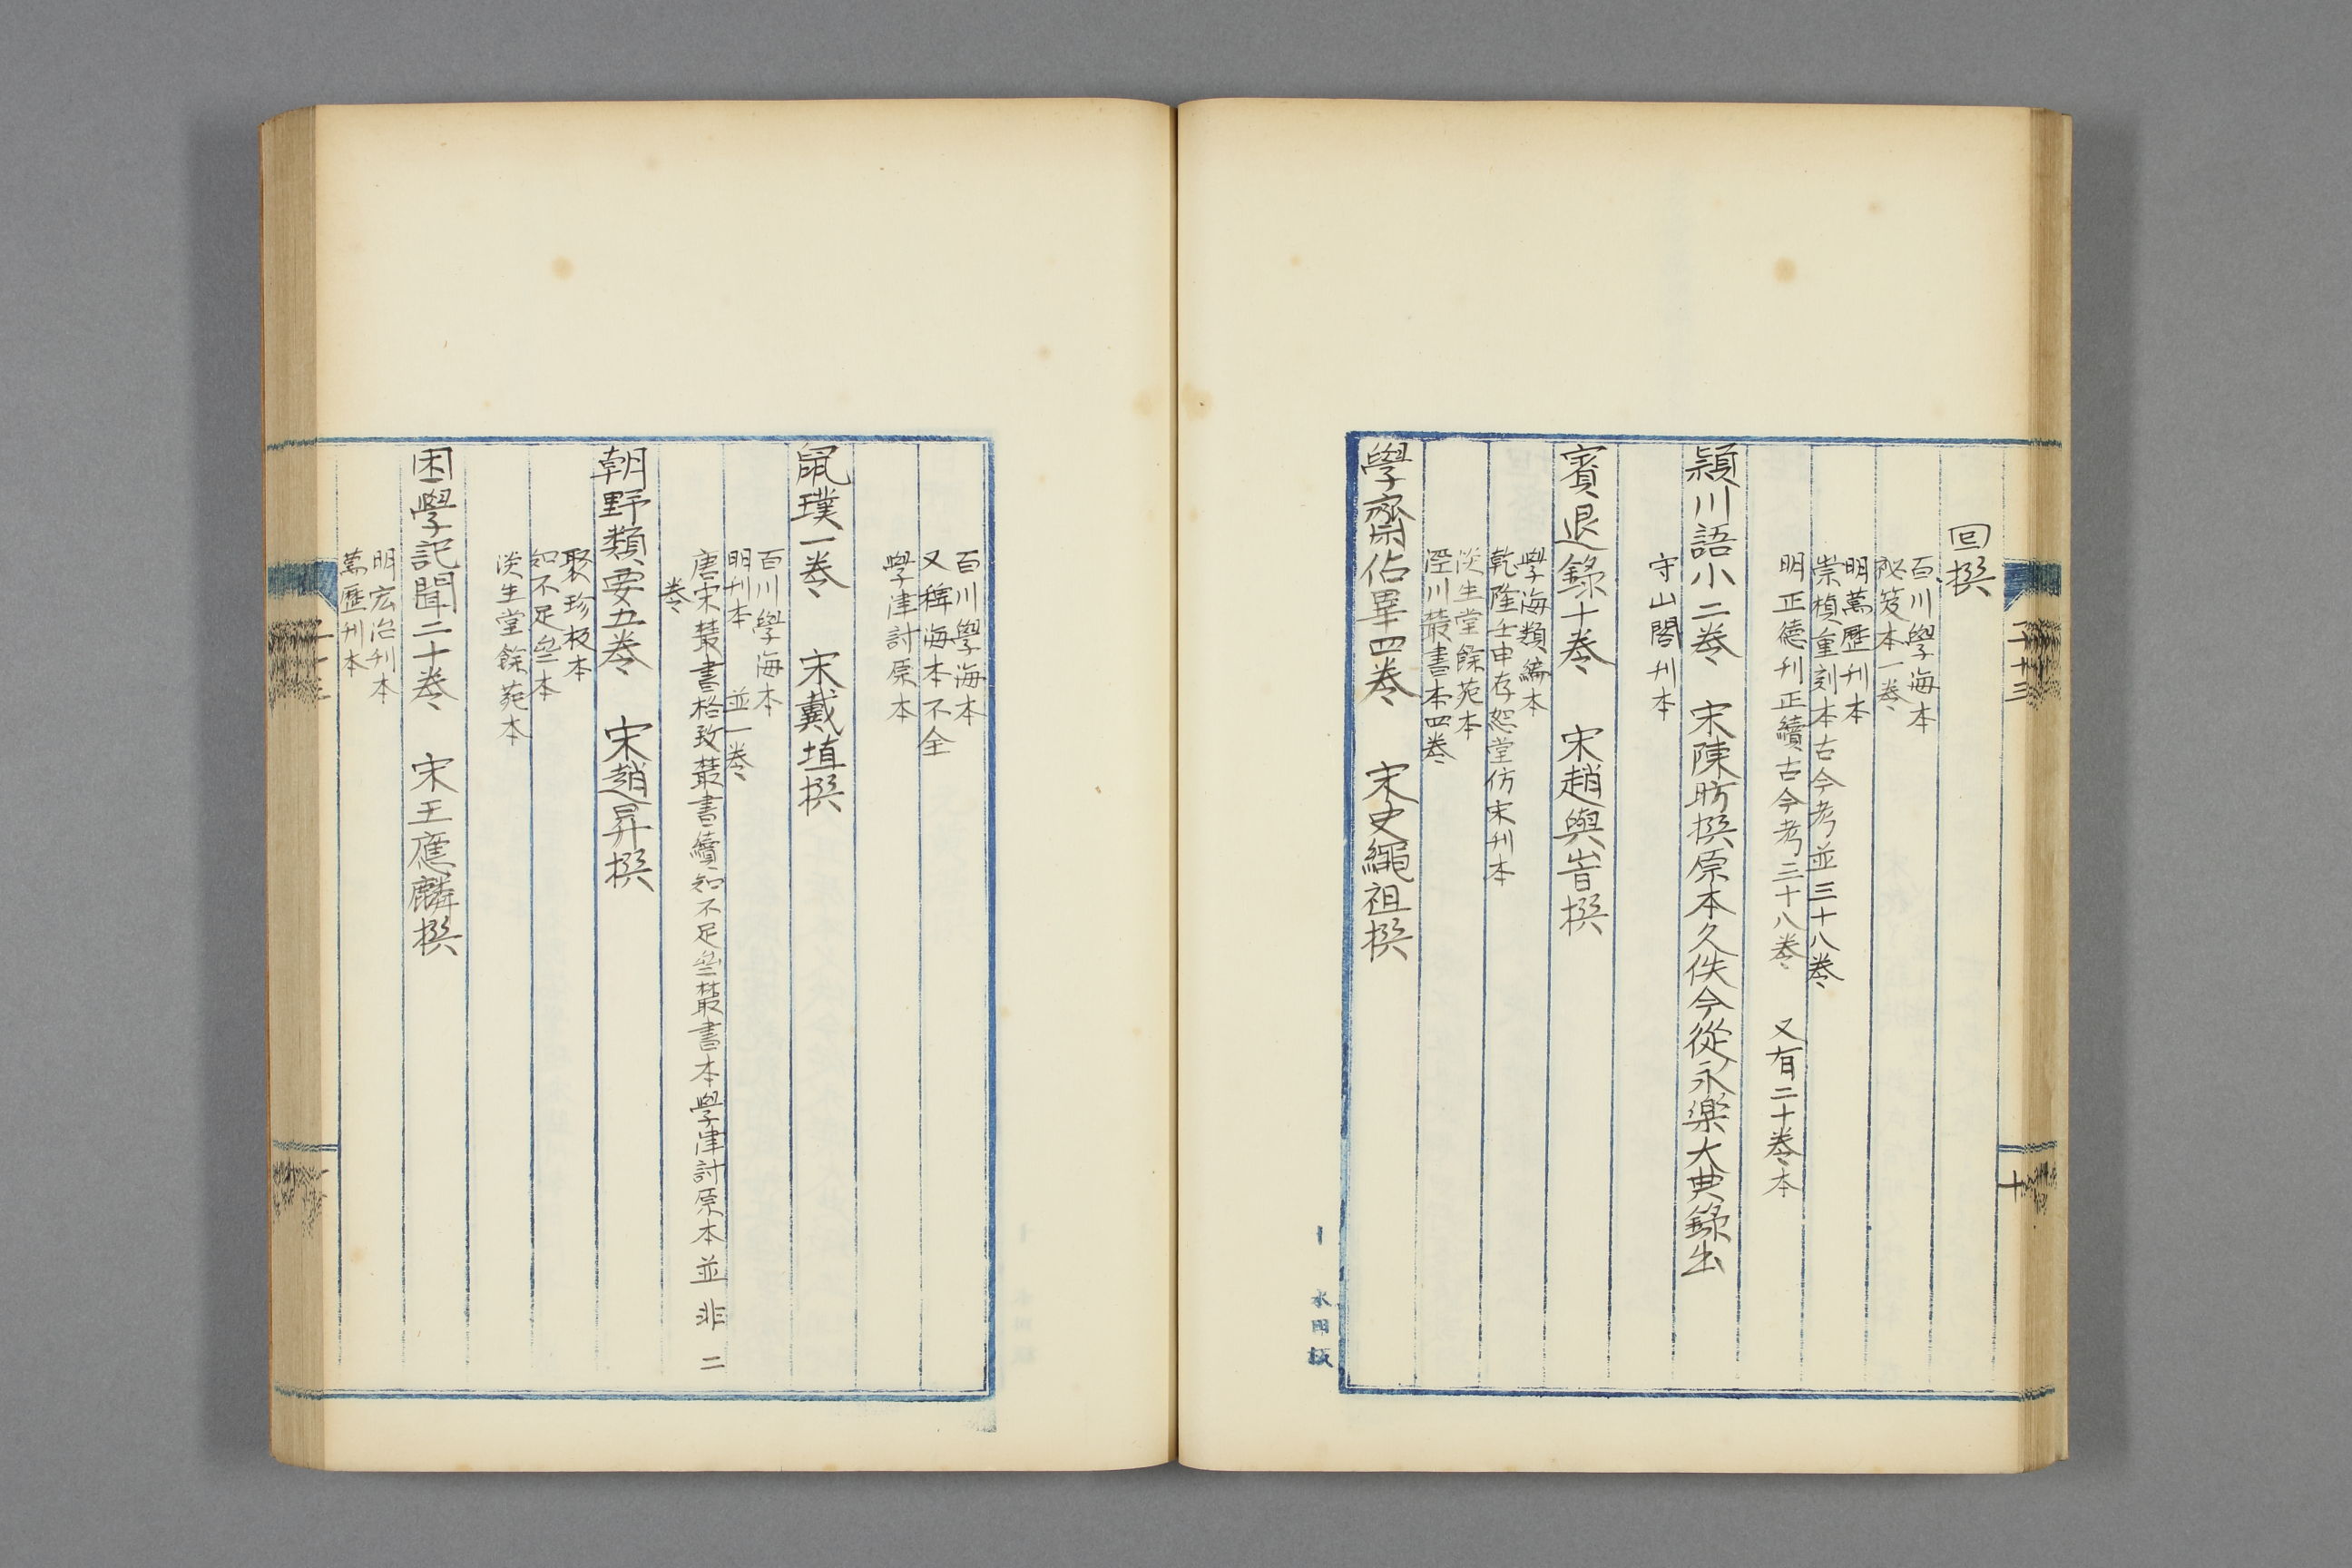 回撰
百川學海本
祕笈本一卷
明萬歷刊本
崇楨重刻本古今考並三十八卷
明正德刊正續古今考三十八卷 又有二十卷本
潁川語小二卷 宋陳昉撰原本久佚今從永樂大典錄出
守山閣刊本
賓退錄十卷 宋趙與旹撰
學海類編本
乾隆壬申存恕堂仿宋刊本
淡生堂餘苑本
涇川叢書本四卷
學齋佔畢四卷 宋史繩祖撰
百川學海本
又稗海本不全
學津討原本
鼠璞一卷 宋戴埴撰
百川學海本
明刊本 並一卷
唐宋叢書格致叢書續知不足齋叢書本學津討原本並非二
卷
朝野類要五卷 宋趙昇撰
聚珍板本
知不足齋本
淡生堂餘苑本
困學記聞二十卷 宋王應麟撰
明宏治刊本
萬歷刊本